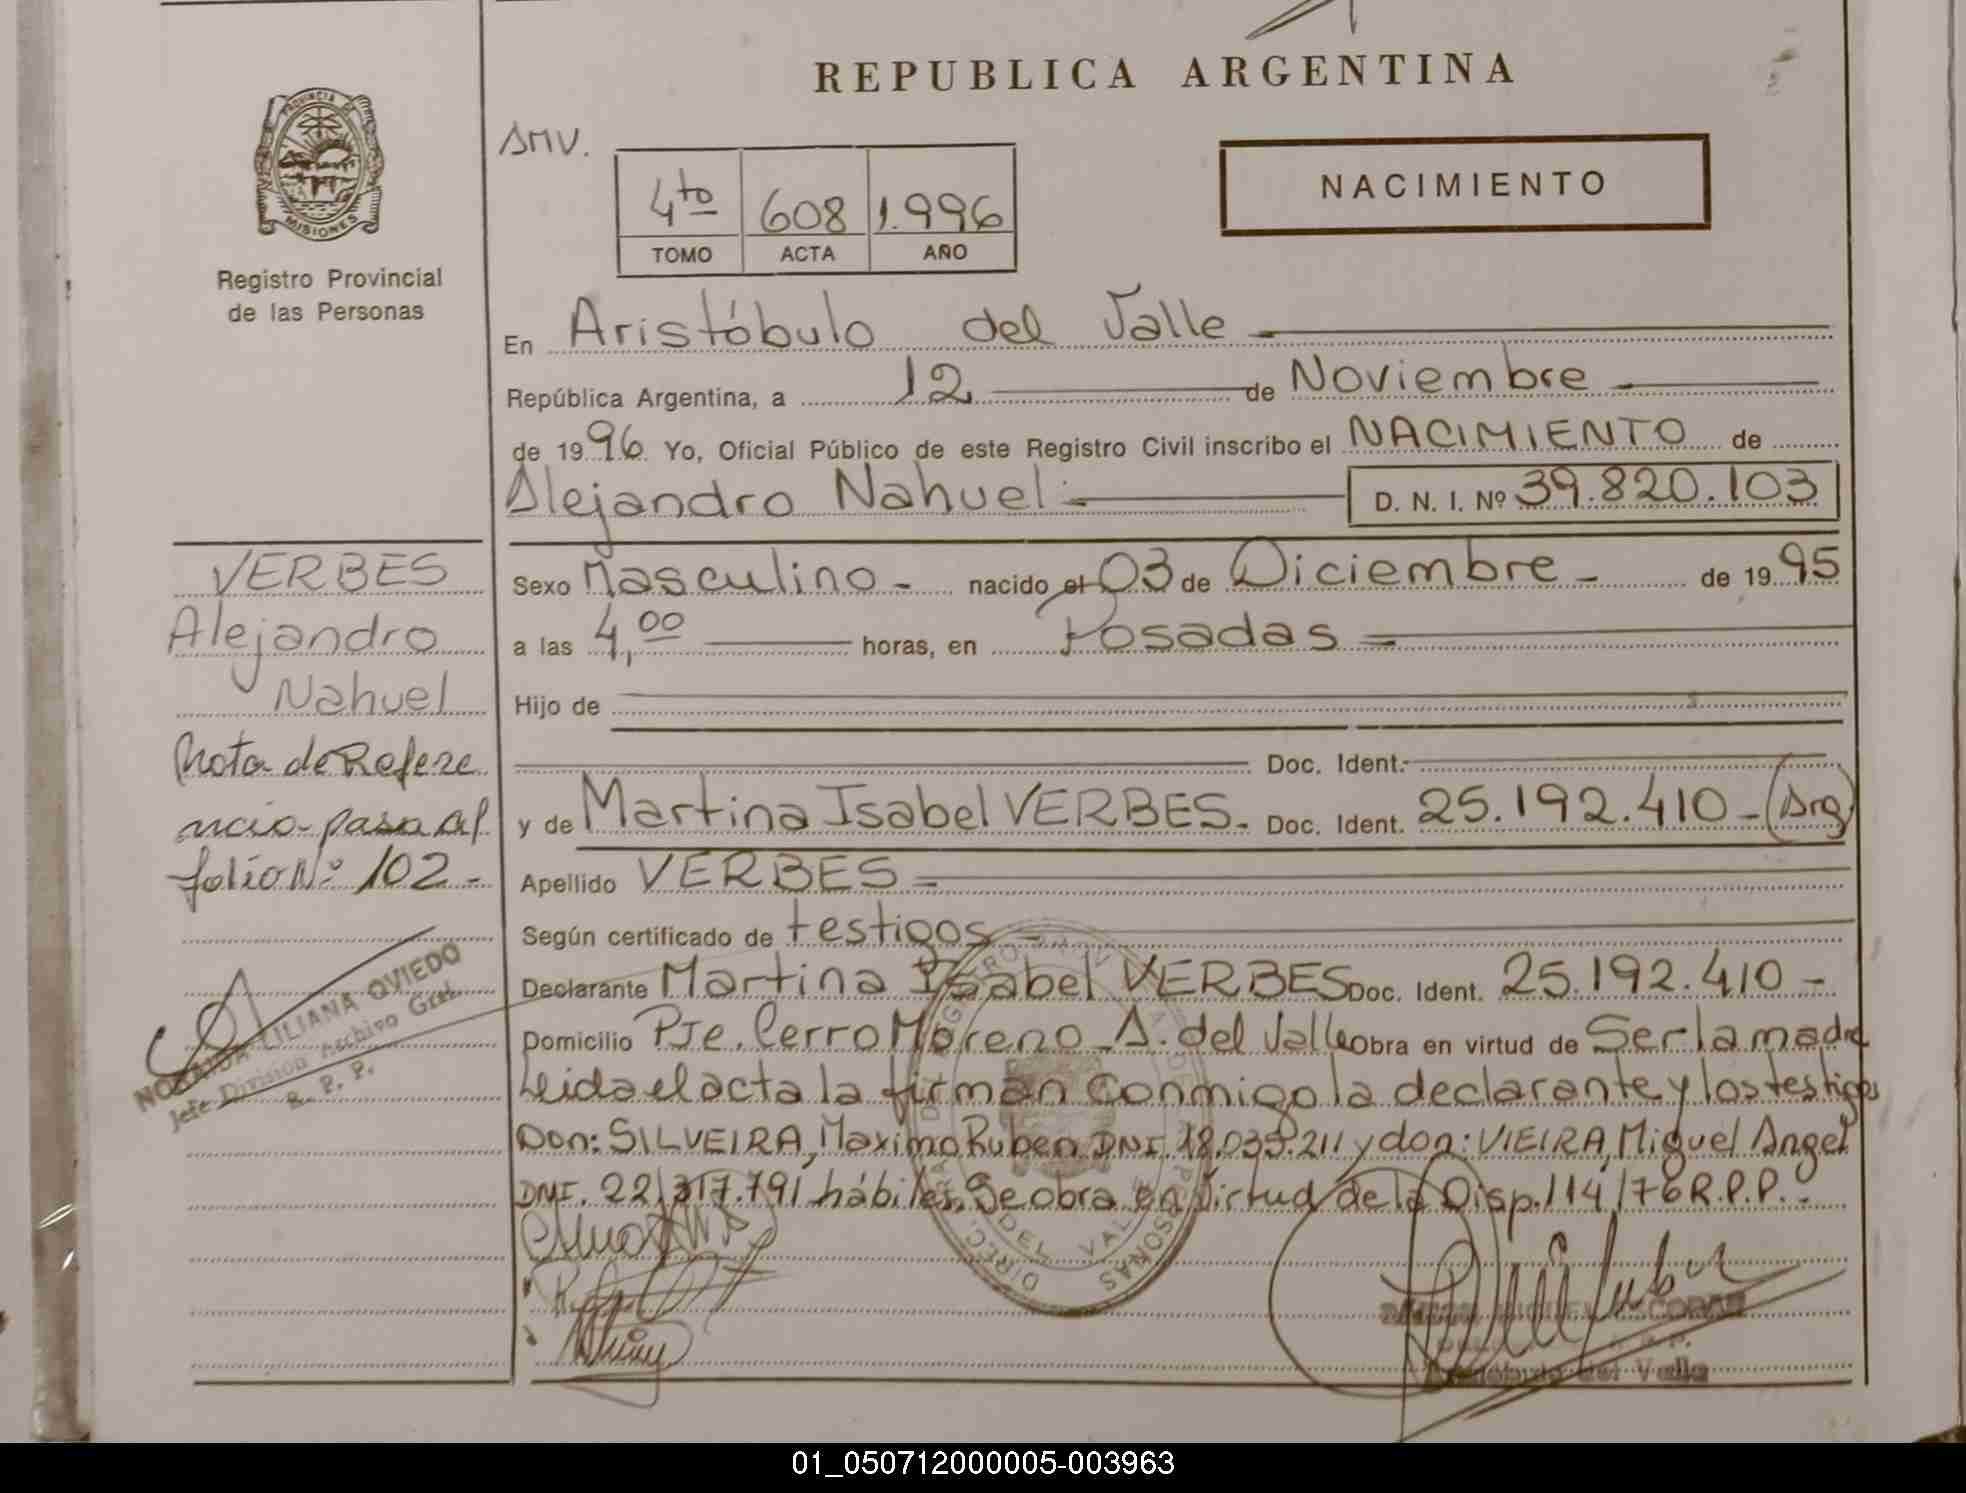 REPUBLICA ARGENTINA
PROVINCIA DE
MISIONES
Registro Provincial
de las Personas
SMV.
4to 608 1.996
TOMO ACTA AÑO
NACIMIENTO
En Aristóbulo del Valle
República Argentina, a 12 de Noviembre
de 1996 Yo, Oficial Público de este Registro Civil inscribo el NACIMIENTO de
Alejandro Nahuel D. N. I. Nº 39.820.103
VERBES
Alejandro
Nahuel
Nota de Refere
ncia-pasa al
folio Nº 102 -
NORAIDA LILIANA OVIEDO
Jefe División Archivo Gral.
R. P. P.
Sexo Masculino - nacido el 03 de Diciembre - de 1995
a las 4,00 horas, en Posadas -
Hijo de
Doc. Ident.
y de Martina Isabel VERBES. Doc. Ident. 25.192.410 - (Arg)
Apellido VERBES -
Según certificado de testigos -
Declarante Martina Isabel VERBES Doc. Ident. 25.192.410 -
Domicilio Pje. Cerro Moreno - A. del Valle Obra en virtud de Ser la madre
Leida el acta la firman conmigo la declarante y los testigos
Don: SILVEIRA, Maximo Ruben DNI. 18.039.211 y don: VIEIRA, Miguel Angel
DNI. 22.317.791 hábiles. Se obra en Virtud de la Disp. 114/76 R.P.P. -
DEL VALLE
ESCOBAR
Aristóbulo del Valle
01_050712000005-003963